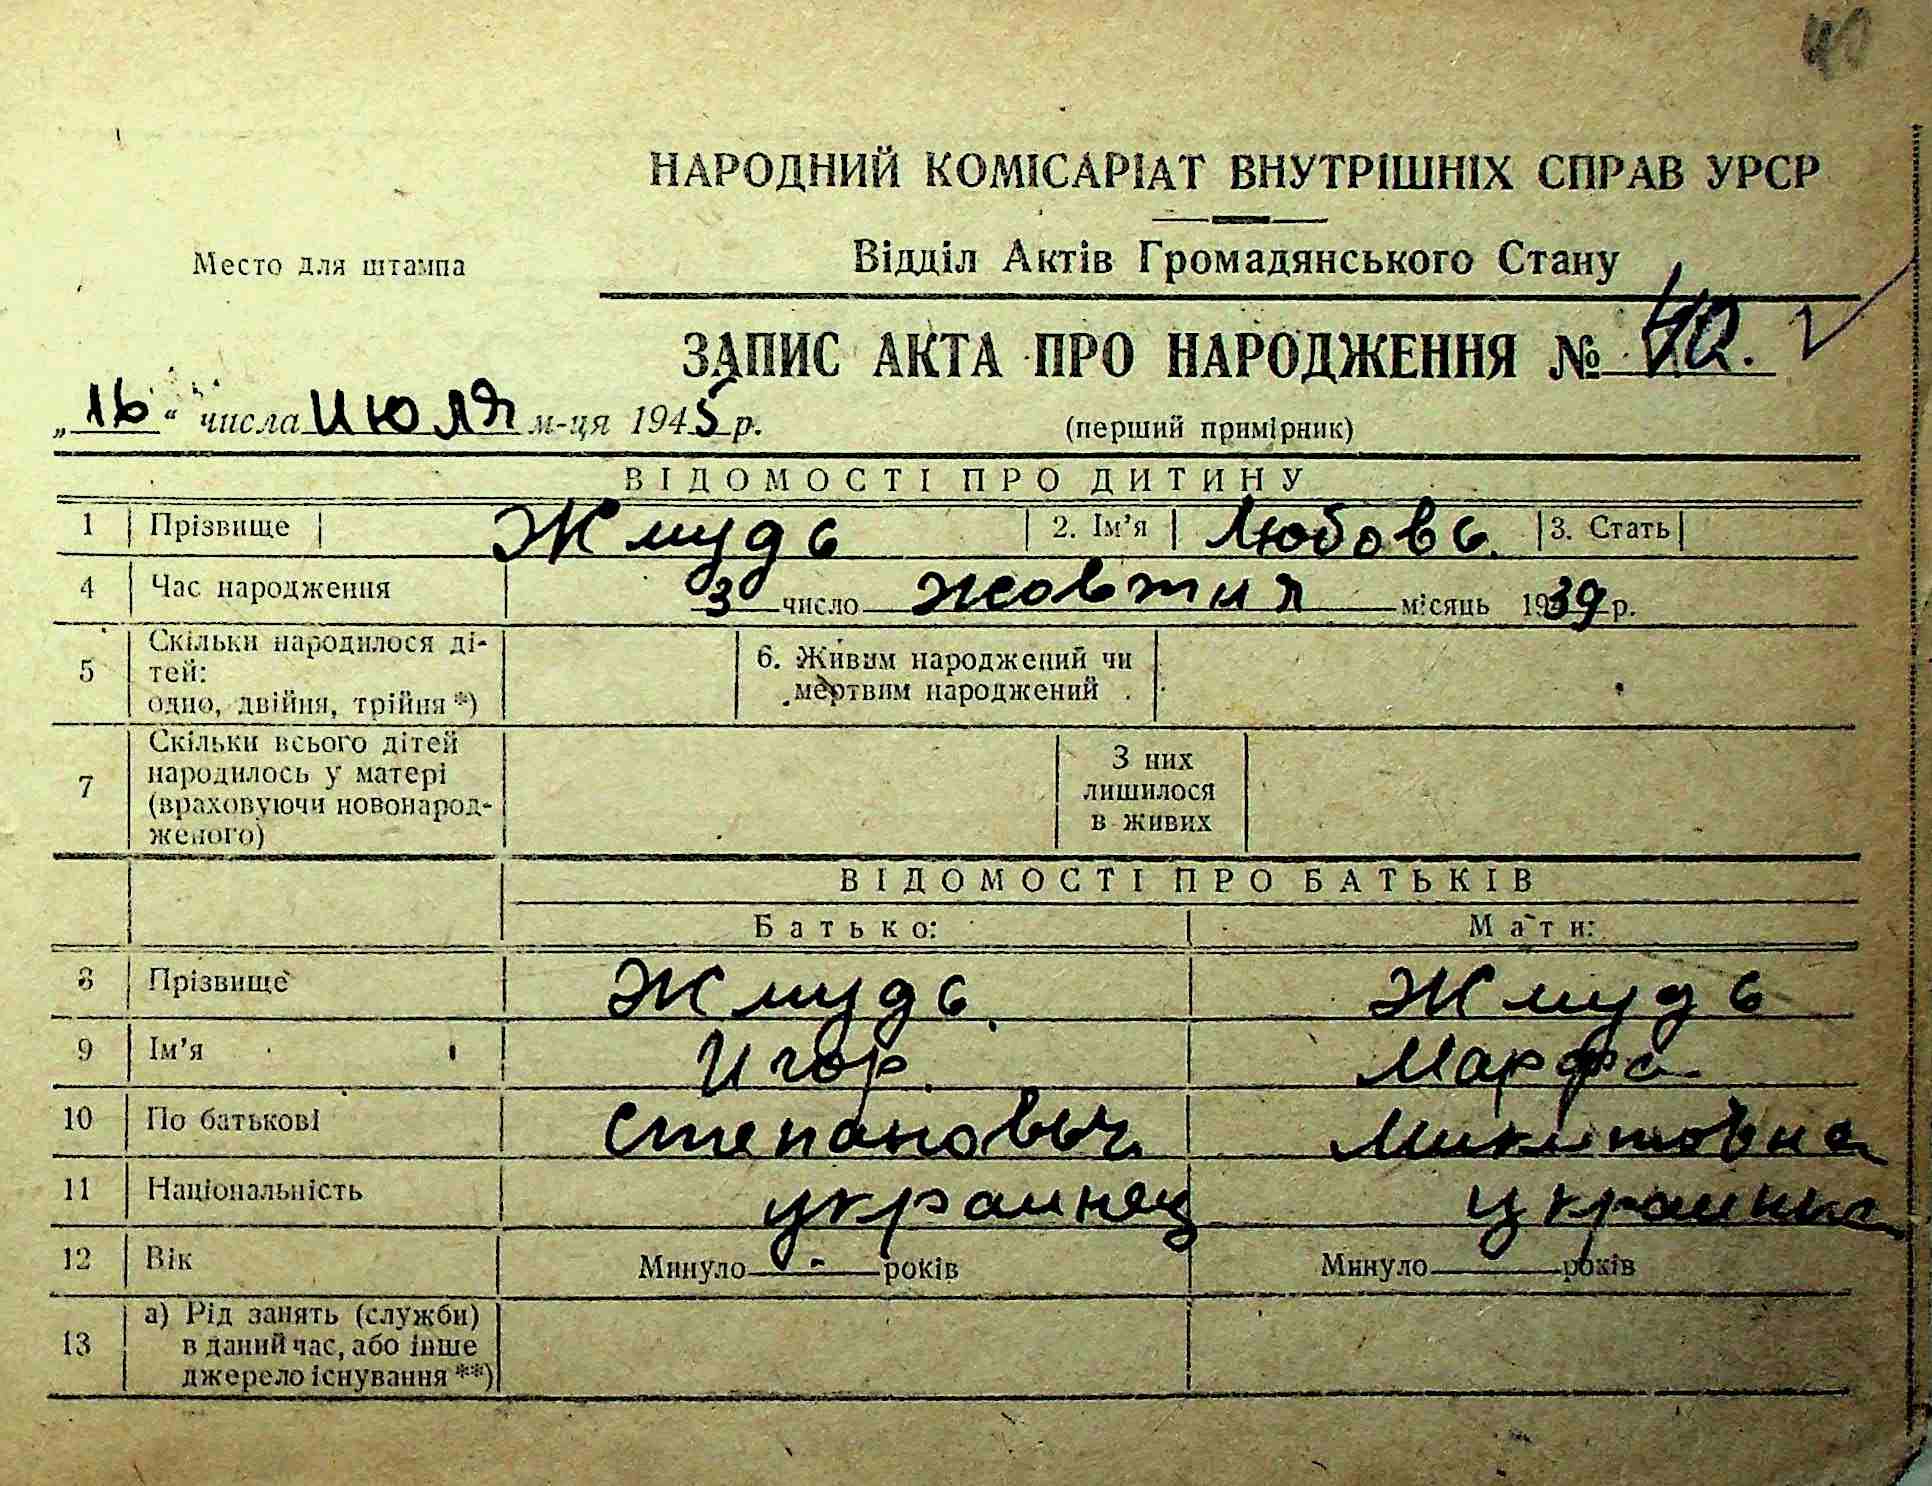 40
НАРОДНИЙ КОМІСАРІАТ ВНУТРІШНІХ СПРАВ УРСР
Место для штампа
Відділ Актів Громадянського Стану
ЗАПИС АКТА ПРО НАРОДЖЕННЯ № 40.
„16“ числа июля м-ця 1945 р.
(перший примірник)
ВІДОМОСТІ ПРО ДИТИНУ
1 Прізвище Жмудь 2. Ім'я Любовь. 3. Стать
4 Час народження 3 число жовтня місяць 1939 р.
5 Скільки народилося ді-
тей:
одно, двійня, трійня *)
6. Живим народжений чи
мертвим народжений
7 Скільки всього дітей
народилось у матері
(враховуючи новонарод-
женого)
З них
лишилося
в живих
ВІДОМОСТІ ПРО БАТЬКІВ
Батько: Мати:
8 Прізвище Жмудь Жмудь
9 Ім'я Игор. Марфа
10 По батькові Степановыч Микитовна
11 Національність украинец украинка
12 Вік Минуло - років Минуло років
13 а) Рід занять (служби)
в даний час, або інше
джерело існування **)